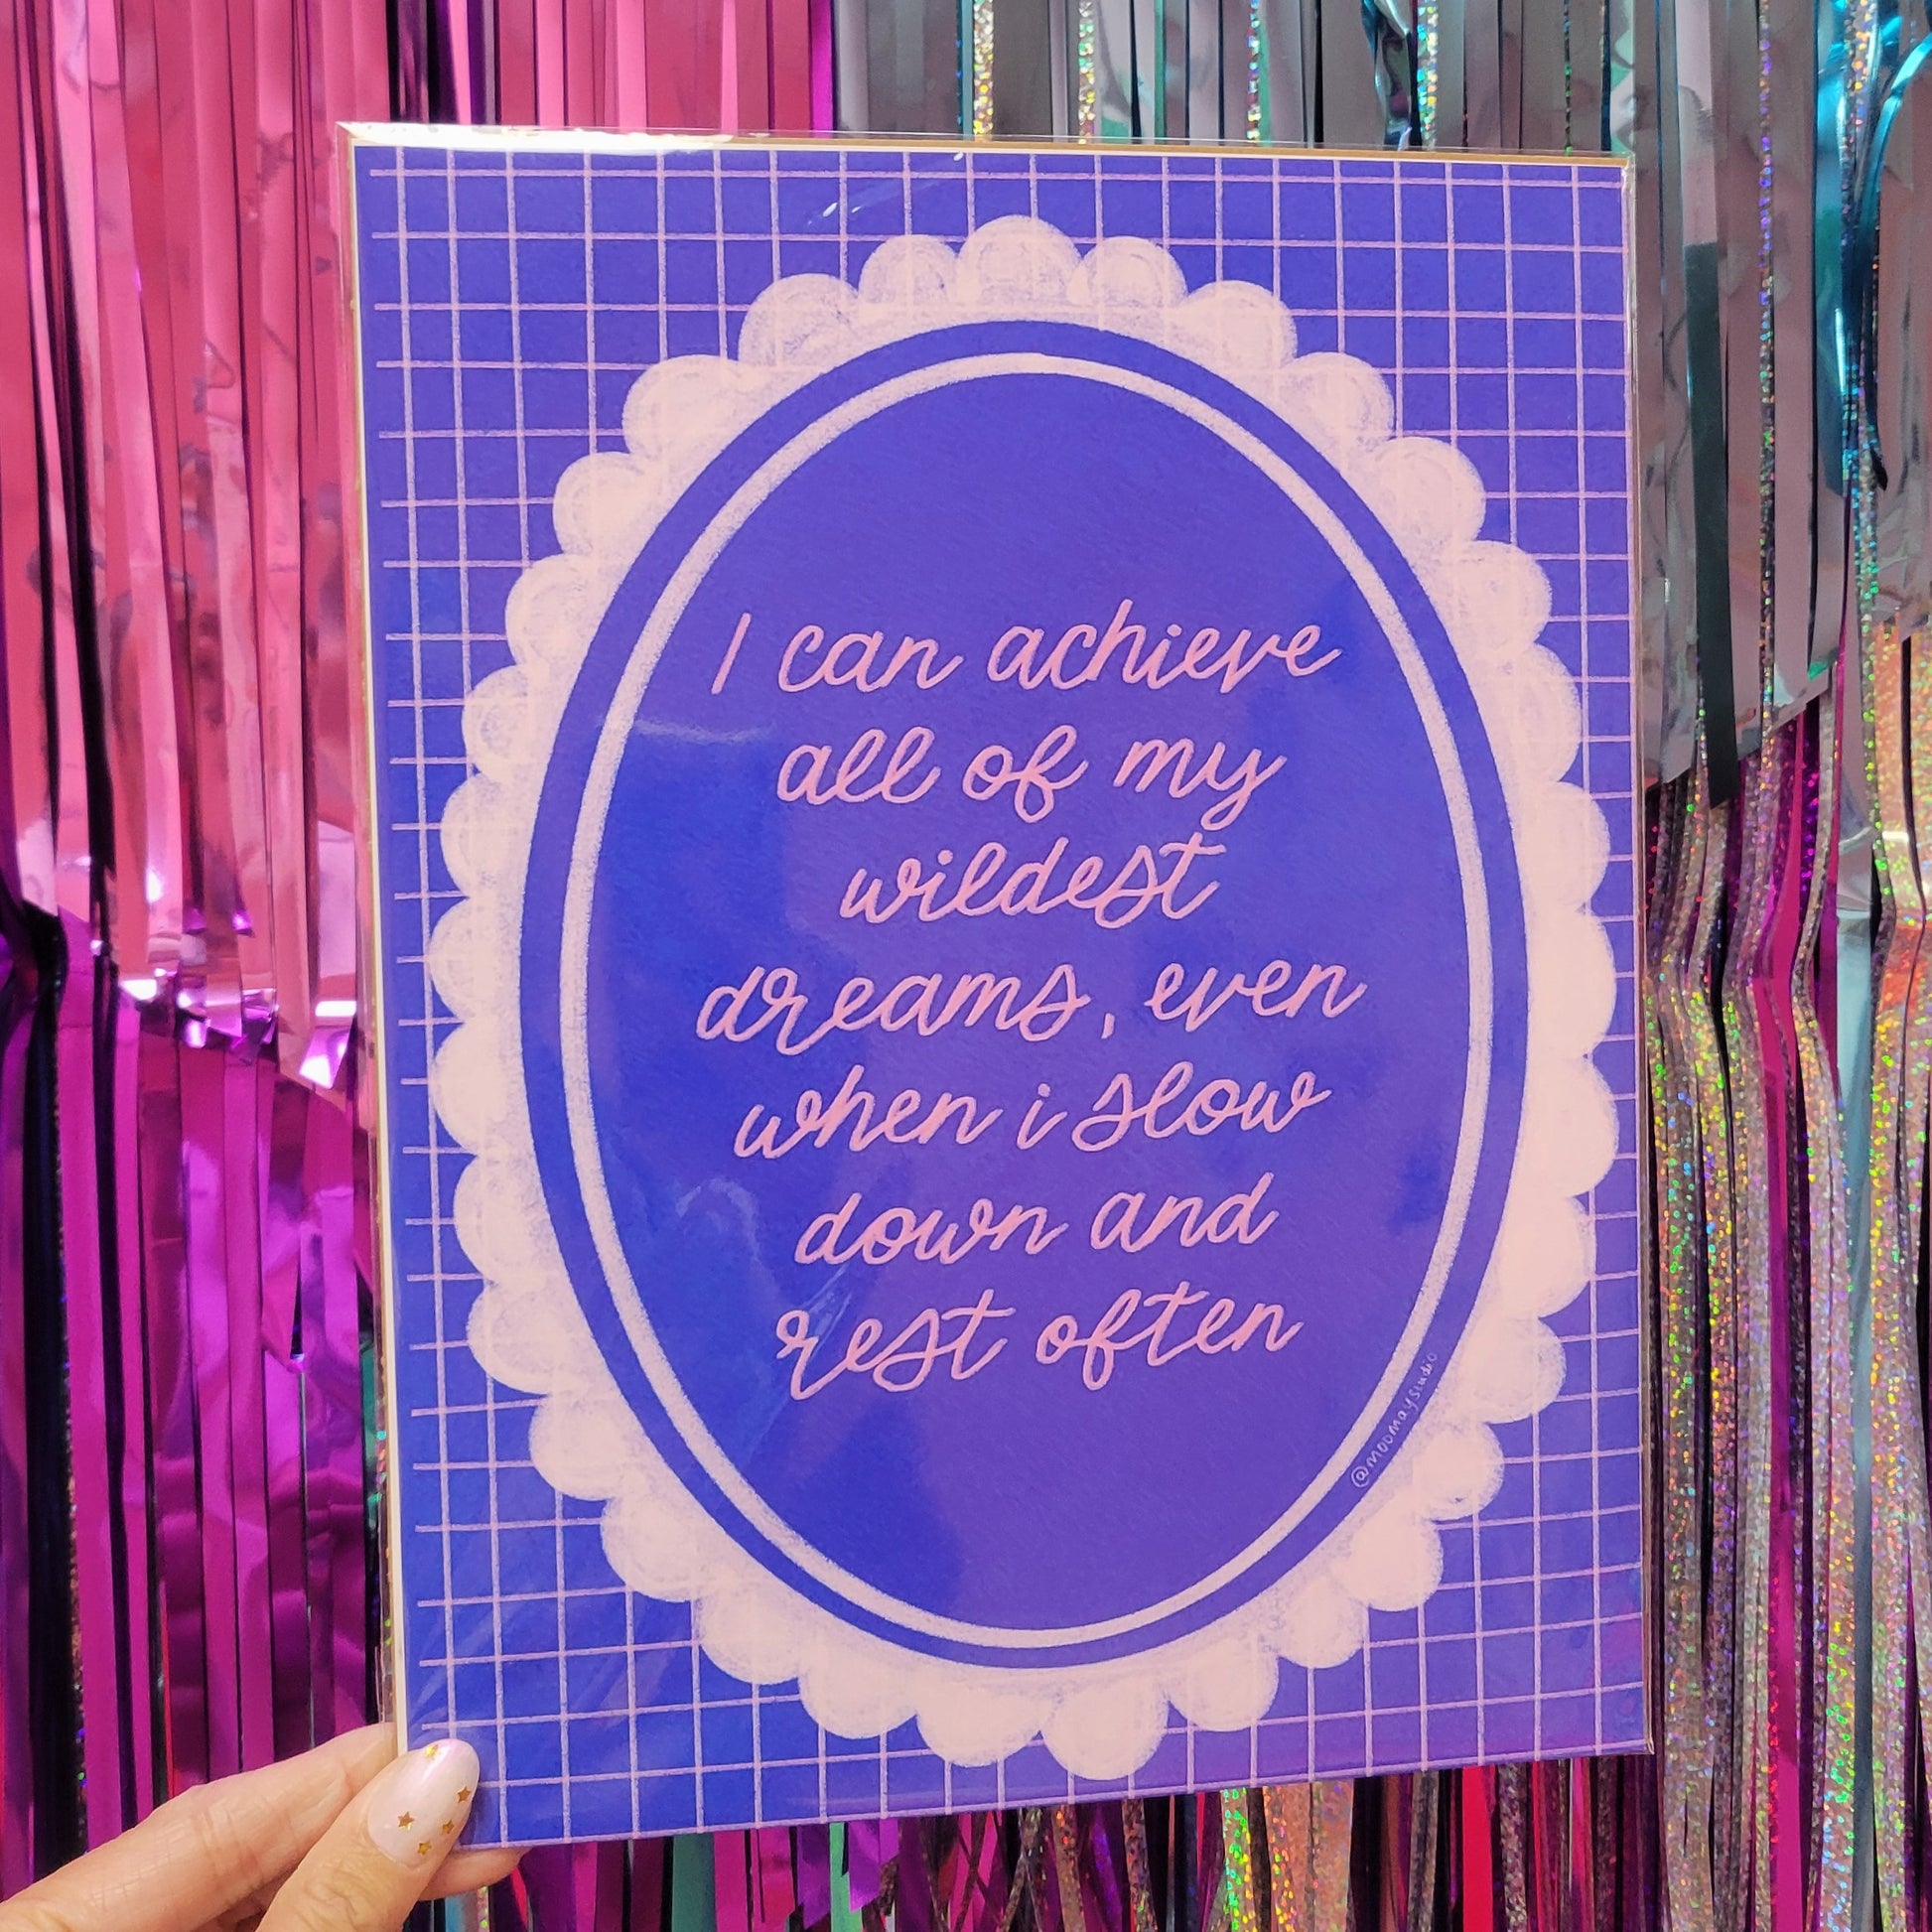 I can achieve
all of my
wildest
dreams, even
when i slow
down and
rest often
@moomaystudio